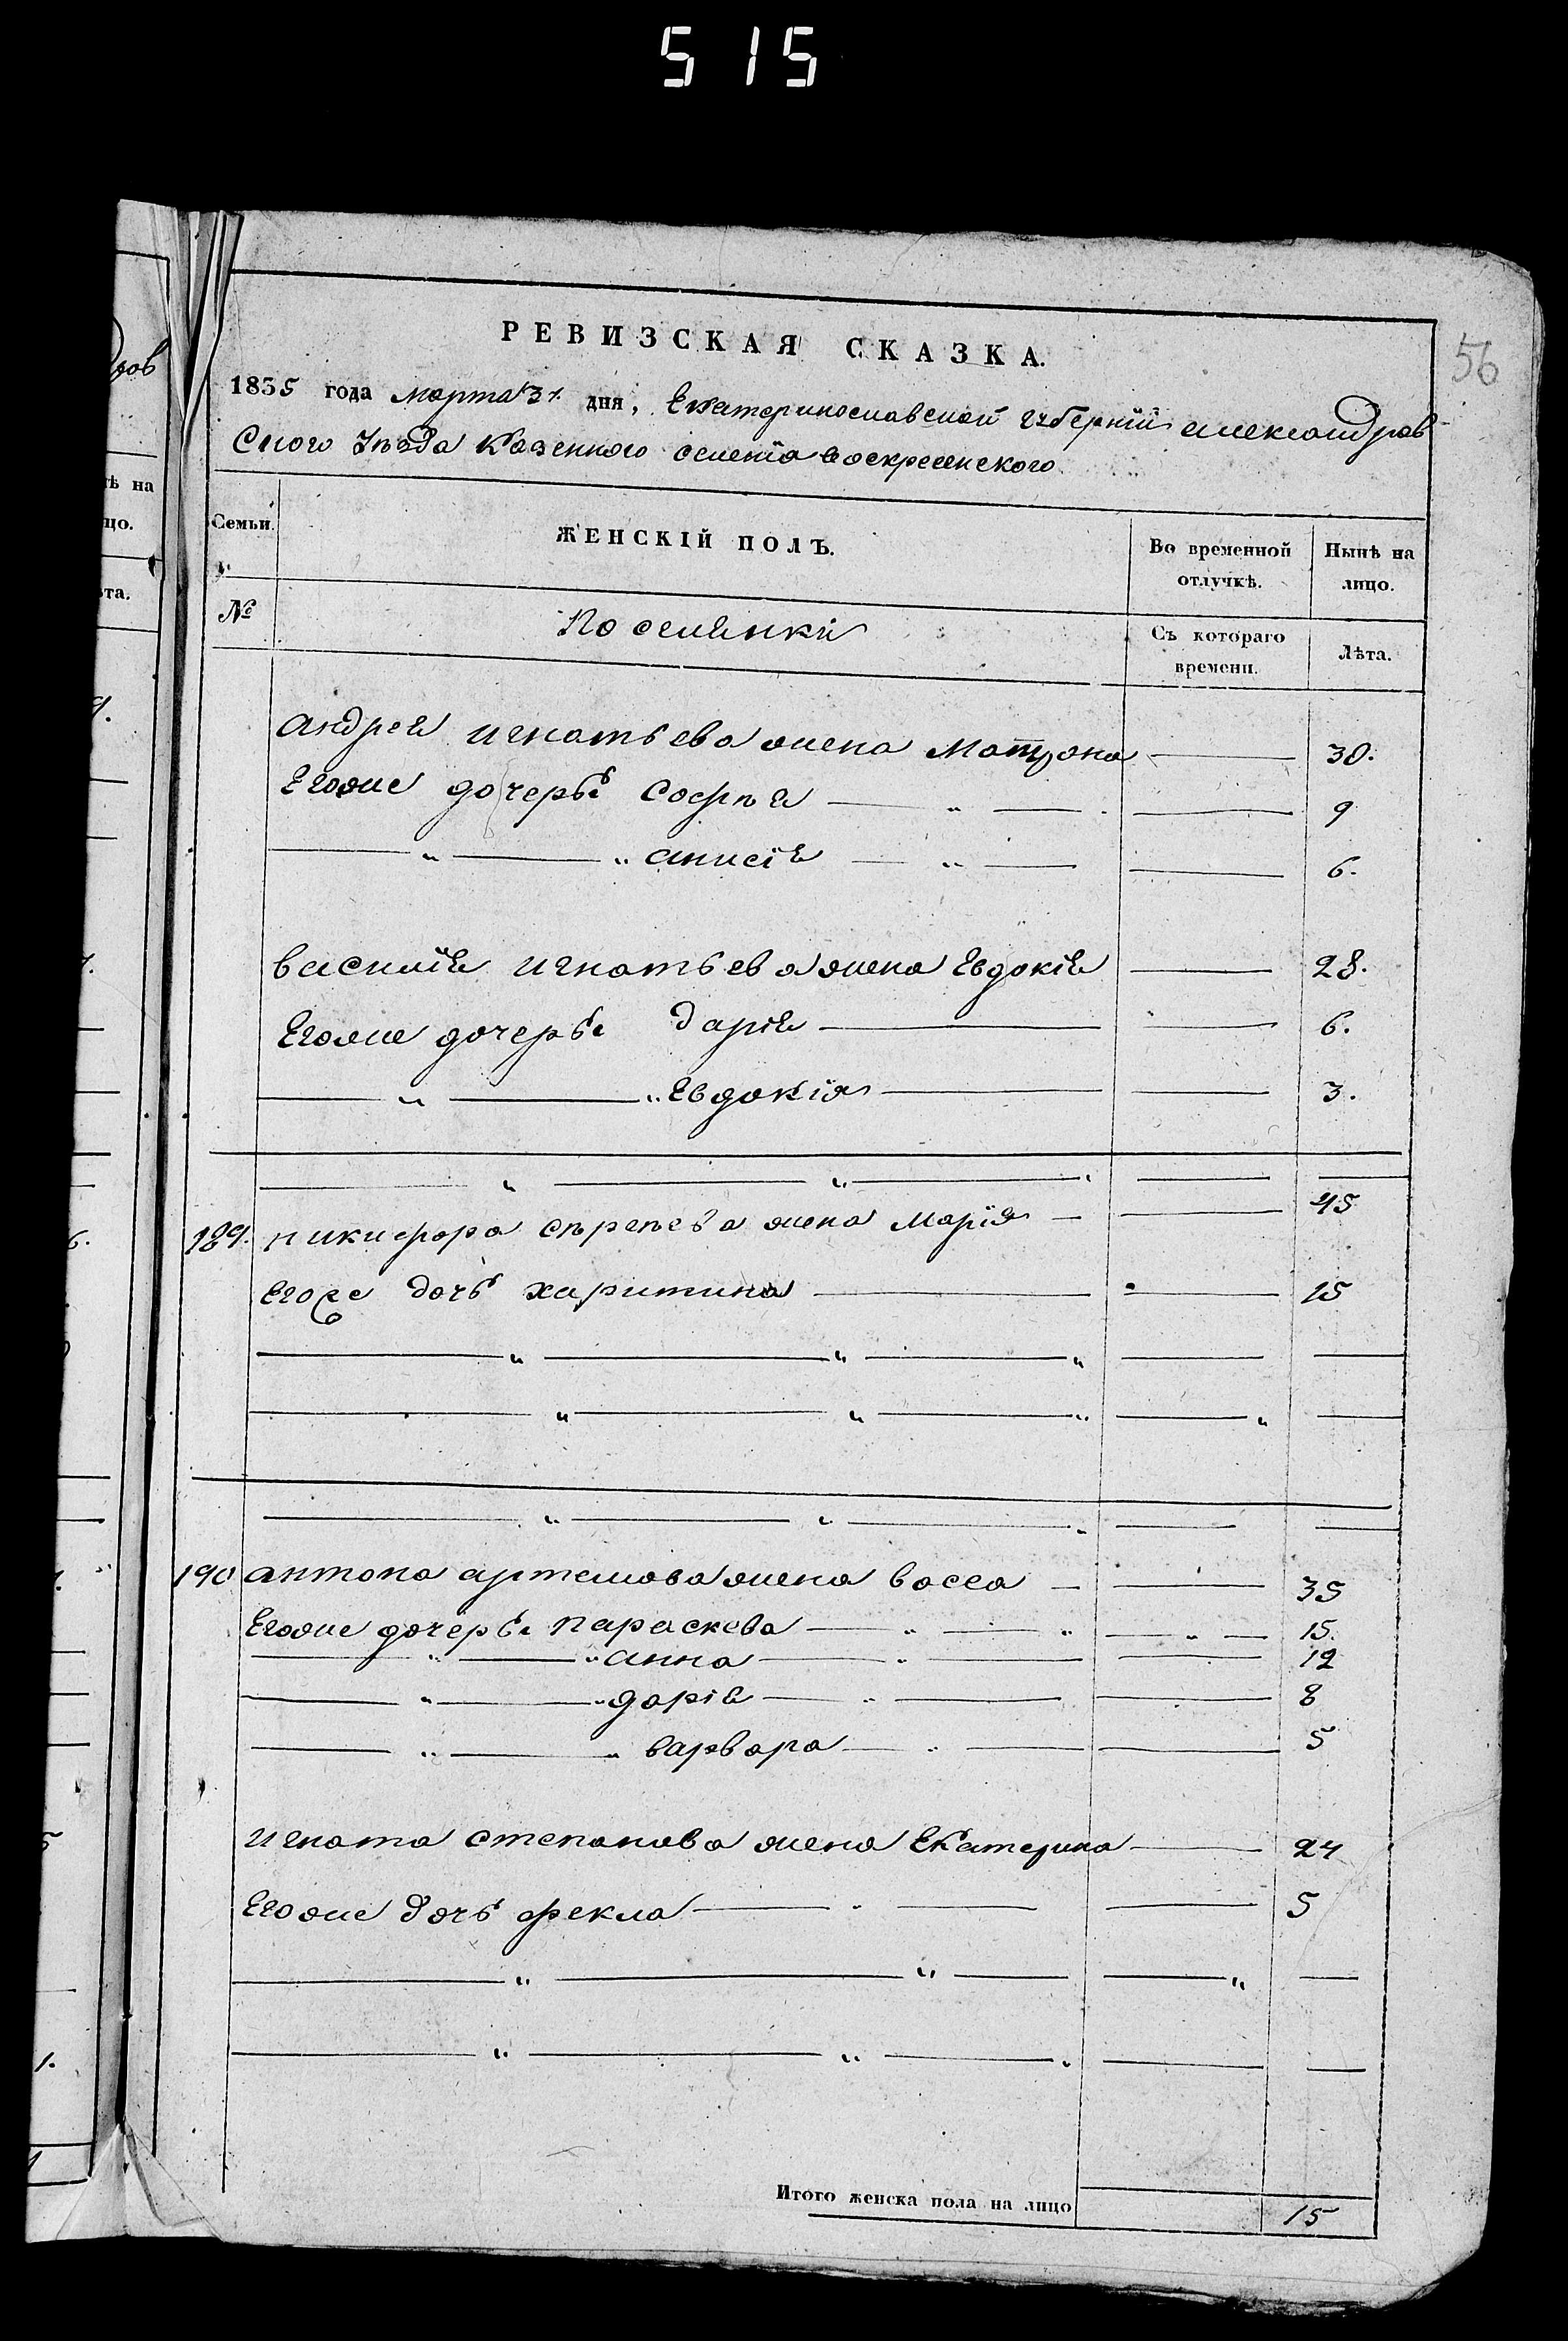 515
56
РЕВИЗСКАЯ СКАЗКА.
1835 года марта 31 дня, Екатеринославской губерніи александров
Ского Уѣзда Казенного селенія воскресенского.
Семьи. ЖЕНСКІЙ ПОЛЪ. Во временной отлучкѣ. Нынѣ на лицо.
№ Поселянки Съ котораго времени. Лѣта.
андрея игнатьева жена Матрона 30.
Егоже дочерьи Софья 9
" " анисія 6.
василія игнатьева жена Евдокія 28.
Егоже дочерьи дарія 6.
" " Евдокія 3.
189. никифора сѣргѣева жена Марія 45
Егоже дочь харитина 15
190 антона артемова жена васса 35
Егоже дочерьи параскева 15.
" " анна 12
" " дарія 8
" " варвара 5
игната степанова жена Екатерина 24
Егоже дочь фекла 5
Итого женска пола на лицо 15
ров
ѣ на
цо.
та.